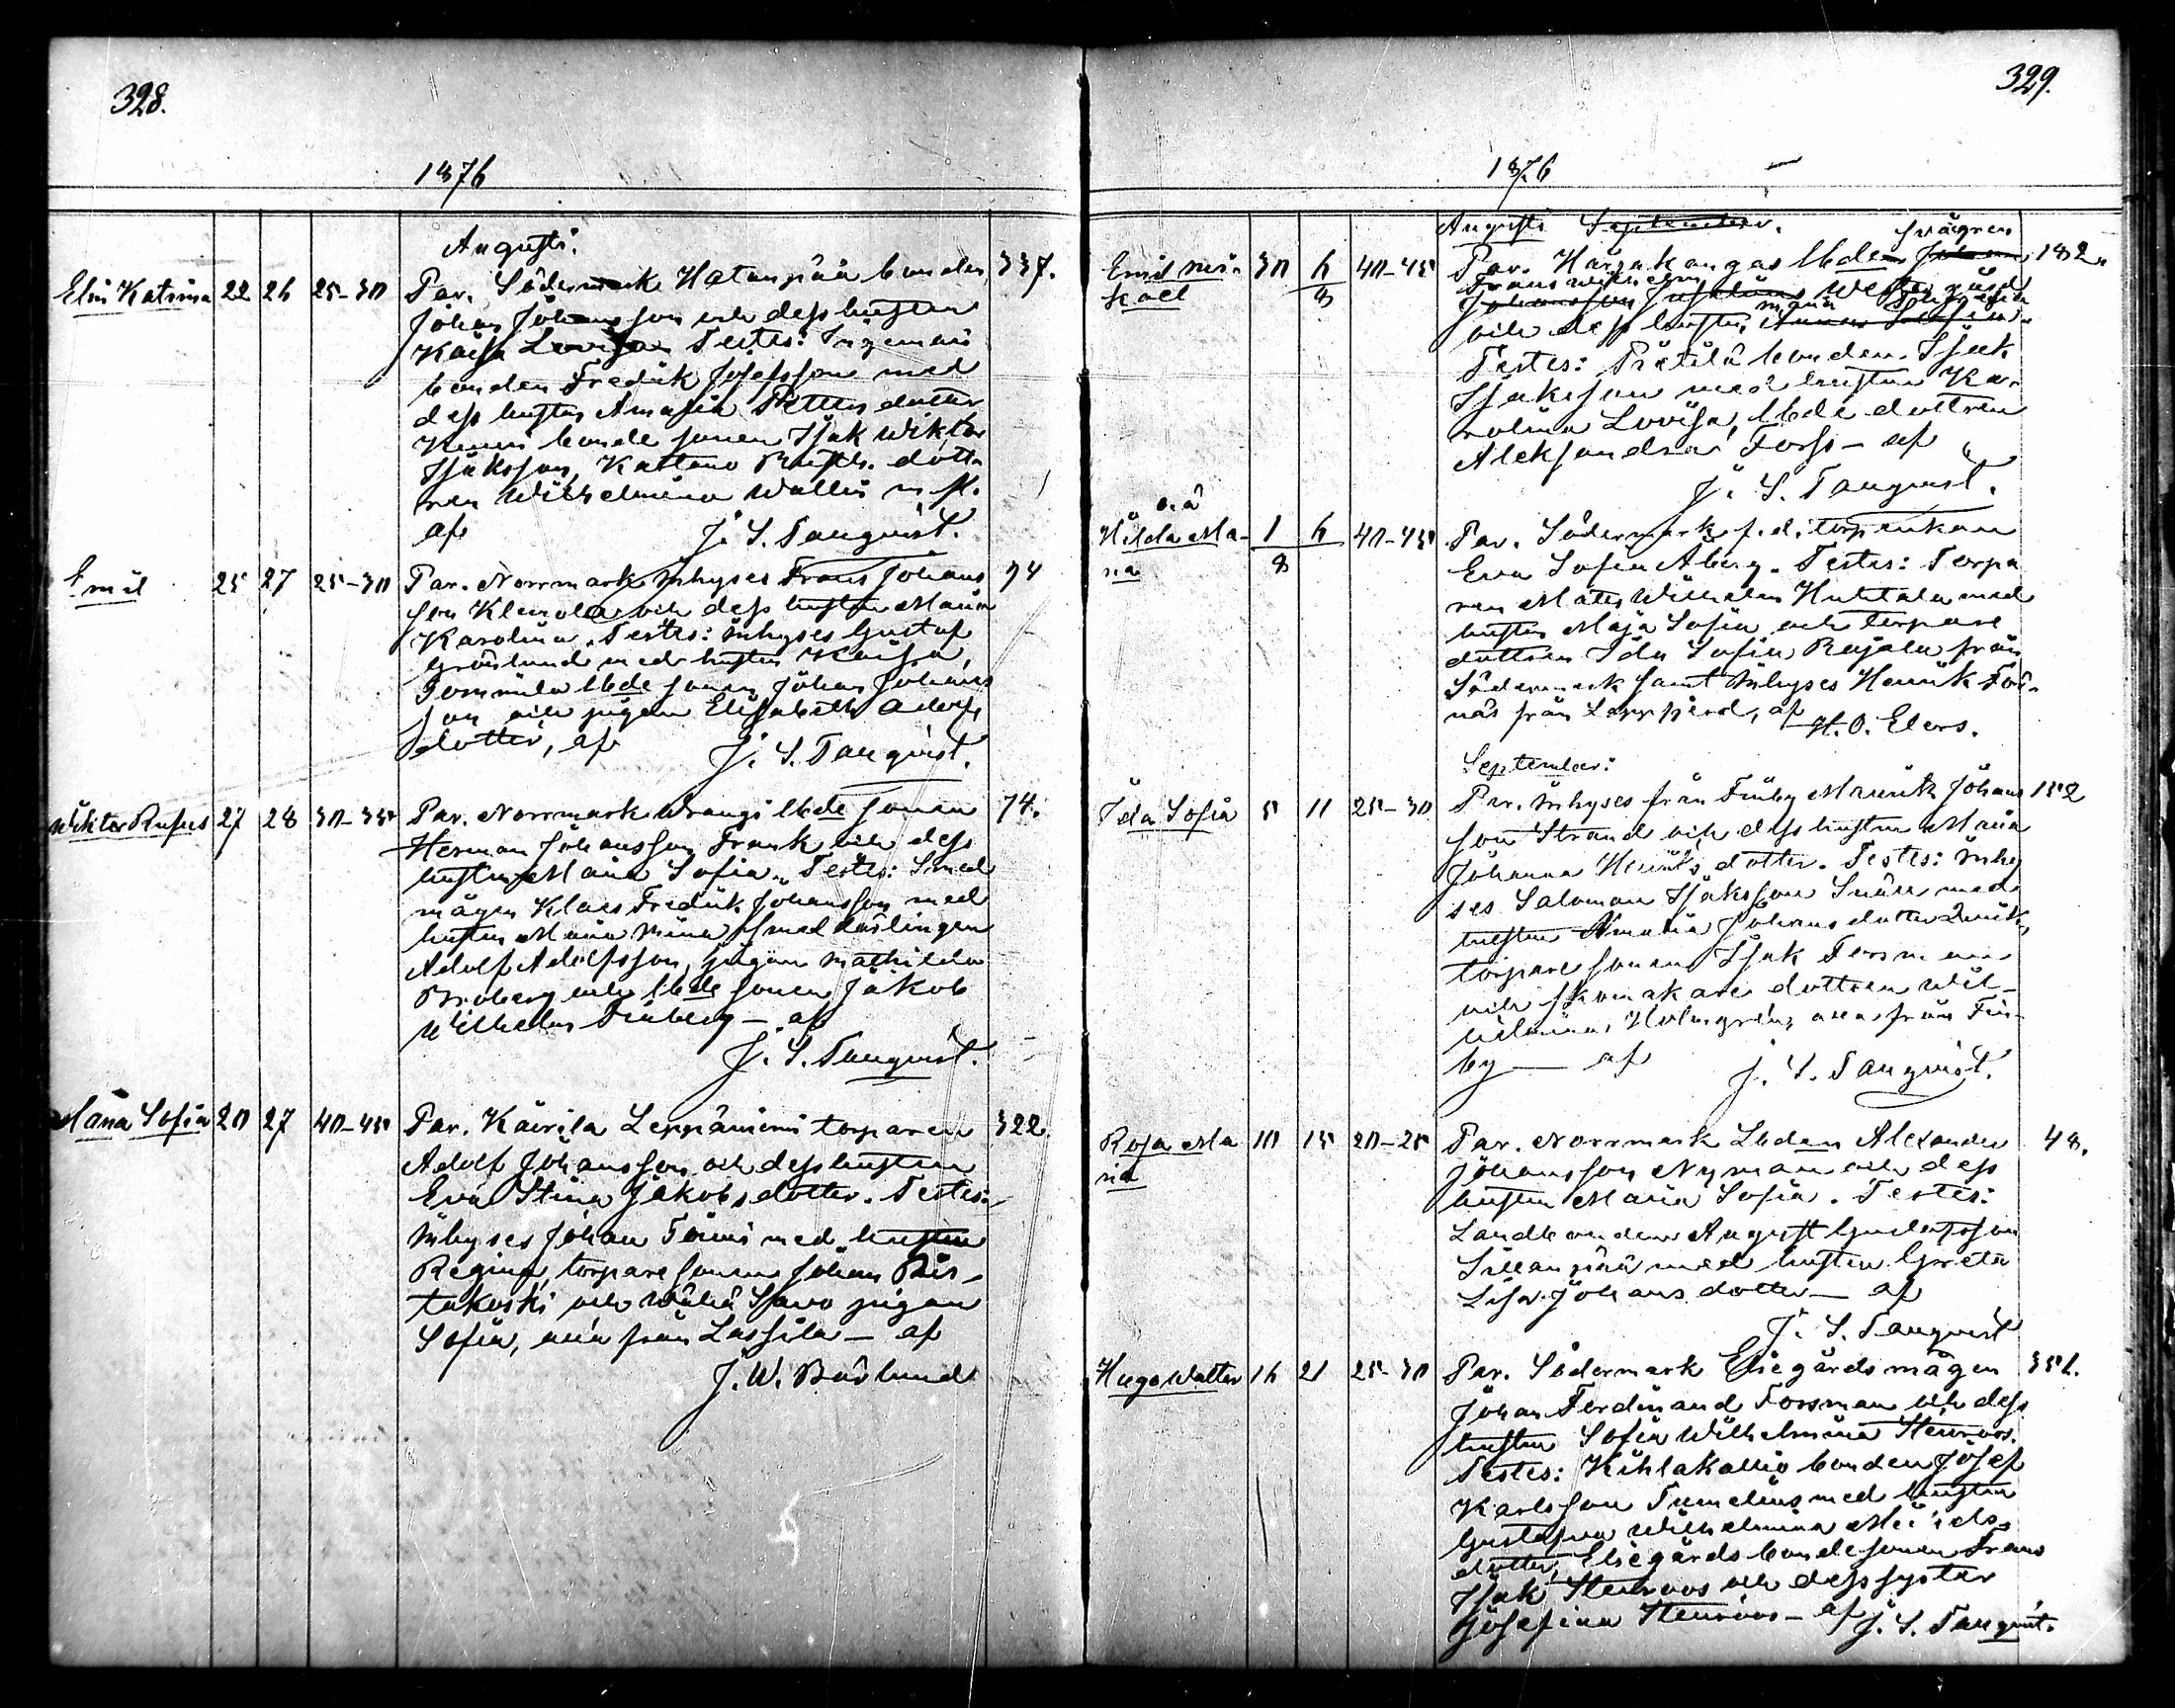 328.
1876
Augusti.
Elin Katrina 22 26 25-30 Par. Södermark Hatanpää bonden 337.
Johan Johansson och dess hustru
Kaisa Lovisa Testes: Ingemari
bonden Fredrik Josefsson med
dess hustru Amalia Petters dotter
bonde sonen Isak Wiktor
Isaksson, Kattano dott-
ren Wilhelmina Wallin m. fl.
af J. S. Tanqvist.
Emil 25 27 25-30 Par. Norrmark Inhyses Frans Johans 94
son Klemola och dess hustru Maria
Karolina. Testes: Inhyses Gustaf
Grönlund med hustru Kaisa,
Tommila Lbde sonen Johan Johans
son och pigan Elisabeth Adolfs
dotter, af J. S. Tanqvist.
Wiktor Rufus 27 28 30-35 Par. Norrmark Wrangi Lbde sonen 74.
Herman Johansson Frank och dess
hustru Maria Sofia. Testes: Smed
mågen Klaes Fredrik Johansson med
hustru Maria Mina smed lärlingen
Adolf Adolfsson, pigan Mathilda
Broberg och Lbde sonen Jakob
Wilhelm Finberg – af
J. S. Tanqvist.
Maria Sofia 20 27 40-45 Par. Kairila Leppäniemi torparen 322.
Adolf Johansson och dess hustru
Eva Stina Jakobsdotter. Testes:
Inhyses Johan Tömi med hustru
Regina, torpare sonen Johan Ris-
takoski och Wähä Sawo pigan
Sofia, alla från Lassila – af
J. W. Barlund
329.
1876
Augusti September. Svägren
Emil Mi- 30 6 40-45 Par. Harjakangas Lbden Johan 182.
kael 8 Frans Wilhelm
Johansson
och dess hustru Maria Josefina
Testes: Prättilä bonden Isak
Isaksson med hustru Ka-
rolina Lovisa, Lbde dottren
Aleksandra Forss – af
J. S. Tanqvist.
oä
Hilda Ma- 1 6 40-45 Par. Södermark f. d. torpenkan
ria 8 Eva Sofia Åberg. Testes: Torpa
ren Mats Wilhelm Huhtala med
hustru Maja Sofia och torpare
dottren Ida Sofia Rajala från
Södermark samt Inhyses Henrik Fors-
näs från Lappfjerd, af
H. O. Elers.
September:
Ida Sofia 5 11 25-30 Par. Inhyses från Finby Maurits Johans 152
son Strand och dess hustru Maria
Johanna Henriks dotter. Testes: Inhy
ses Salomon Isaksson Snäll med
hustru Amalia Johans dotter
torpare sonen Isak Forsman
och skomakare dottren Wil-
helmina Holmgren, alla från Fin-
by – af J. S. Tanqvist.
Rosa Ma 10 15 20-25 Par. Norrmark Lbden Alexander 48.
ria Johansson Nyman och dess
hustru Maria Sofia. Testes:
Landbonden August Gustafsson
Sillanpää med hustru Greta
Lisa Johans dotter – af
J. S. Tanqvist
Hugo Walter 16 21 25-30 Par. Södermark Elsegårds mågen 351.
Johan Ferdinand Forsman och dess
hustru Sofia Wilhelmina Stenroos.
Testes: Kihlakallio bonden Josef
Karlsson Tumelius med hustru
Gustafva Wilhelmina
dotter, Elsegårds bonde sonen Frans
Isak Stenroos och dess syster
Josefina Stenroos – af J. S. Tanqvist.